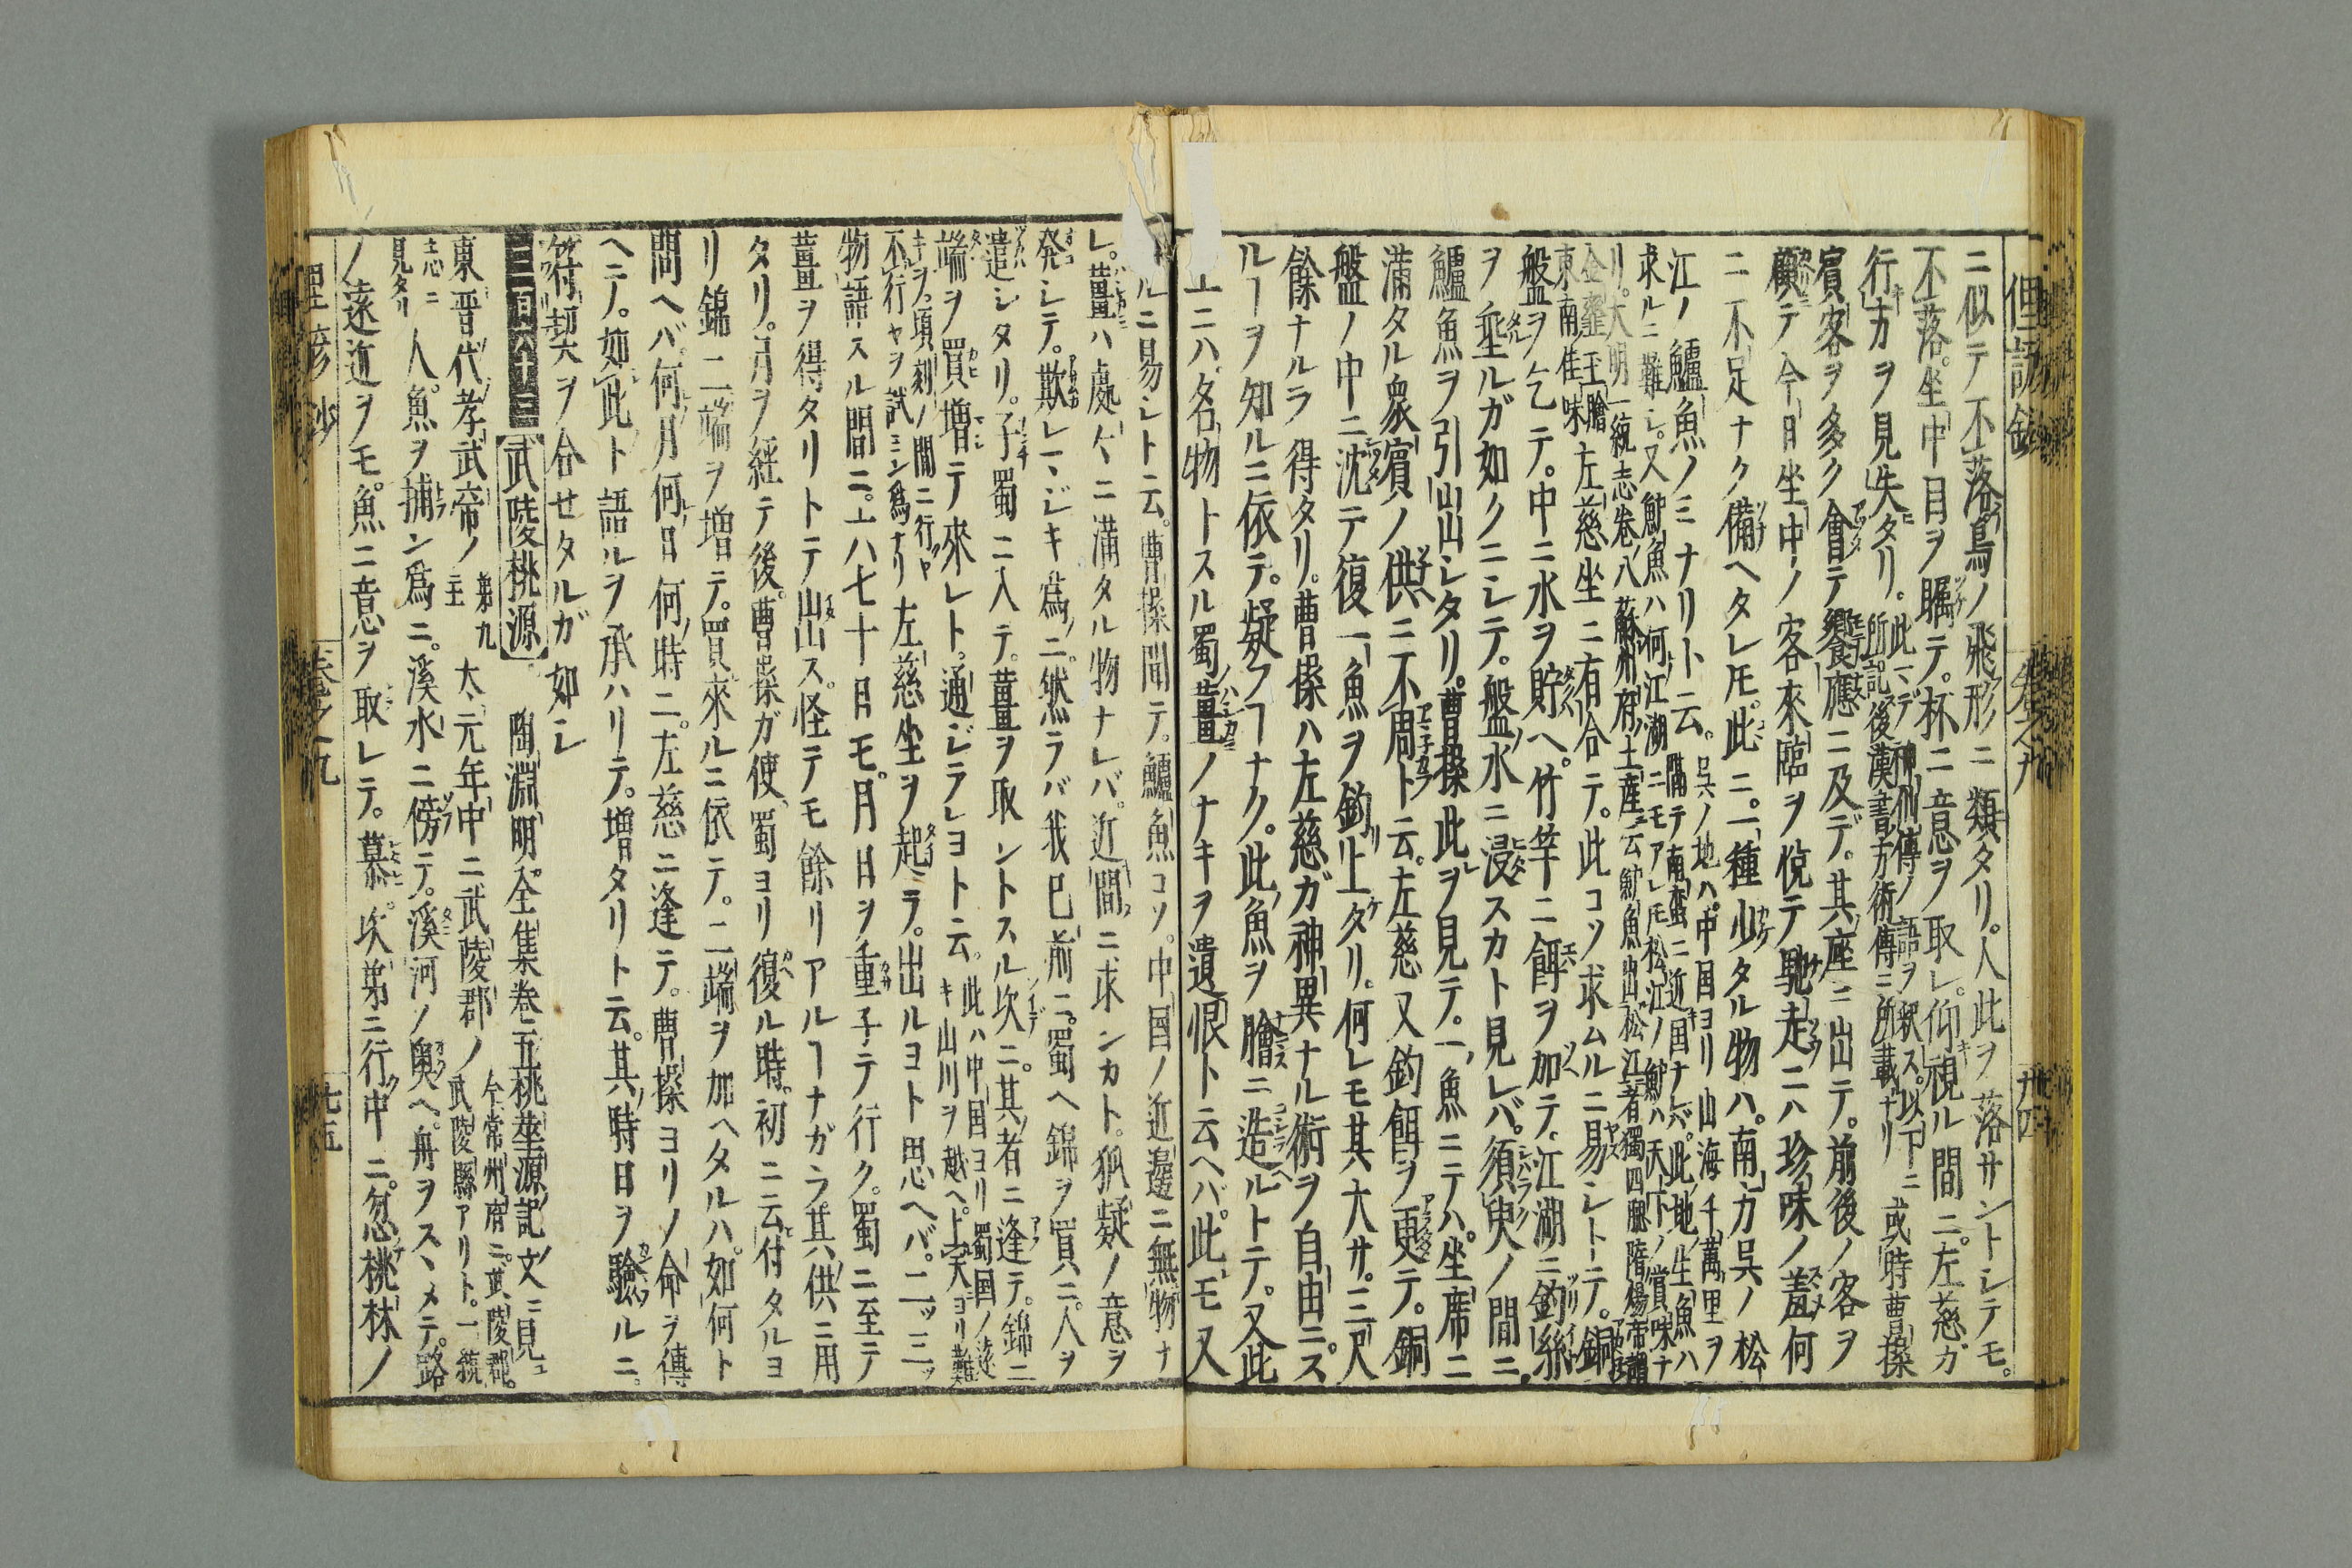 卷之九
廿四
ニ似テ不落鳥ノ飛形ニ類タリ。人此ヲ落サントレテモ。
不落。坐中目ヲ矚テ。杯ニ意ヲ取レ。仰視ル間ニ。左慈ガ
行カヲ見失タリ。此マデ神仙傳ノ語ヲ釈ス。以下ニ
所記後漢書方術傳ニ所載ナリ 或時曹操
賓客ヲ多ク會テ饗應ニ及デ。其座ニ出テ。前後ノ客ヲ
顧テ今日坐中ノ客來臨ヲ悦テ馳走ニハ珍味ノ羞何
ニ不足ナク備ヘタレ𪜈。此ニ。一種少タル物ハ。南方呉ノ松
江ノ鱸魚ノミナリト云。呉ノ地ハ。中国ヨリ山海千萬里ヲ
隔テ南蛮ニ近国ナレバ。此地ノ生魚ハ
求ルニ難シ。又鱸魚ハ何江湖ニモアレ𪜈松江ノ鱸ハ天下ノ賞味ナ
リ。大明一統志卷八蘇州府土産ニ云鱸魚出松江者獨四腮隋煬帝謂
金虀玉膾
東南佳味 左慈坐ニ有合テ。此コソ求ムルニ易シトーテ。銅
盤ヲ乞テ。中ニ水ヲ貯ヘ。竹竿ニ餌ヲ加テ。江湖ニ釣絲
ヲ垂ルガ如クニレテ。盤水ニ浸スカト見レバ。須臾ノ間ニ。
鱸魚ヲ引出シタリ。曹操此ヲ見テ。一魚ニテハ。坐席ニ
滿タル衆賓ノ供ニ不周ト云。左慈又釣餌ヲ更テ。銅
盤ノ中ニ沈テ復一魚ヲ釣上タリ。何レモ其大サ。三尺
餘ナルラ得タリ。曹操ハ左慈ガ神異ナル術ヲ自由ニス
ルヿヲ知ルニ依テ。疑フヿナク。此魚ヲ膾ニ造ルトテ。又此
上ニハ。名物トスル蜀薑ノナキヲ遺恨ト云ヘバ。此モ又
ルニ易シト云。曹操聞テ。鱸魚コソ。中国ノ近邊ニ無物ナ
レ。薑ハ處々ニ滿タル物ナレバ。近間ニ求ンカト。狐疑ノ意ヲ
発シテ。欺レマジキ爲ニ。然ラバ我已前ニ。蜀ヘ錦ヲ買ニ。人ヲ
遣シタリ。子蜀ニ入テ。薑ヲ取ントスル次ニ。其者ニ逢テ。錦二
端ヲ買増テ來レト。通ジラレヨト云。此ハ中国ヨリ蜀国ノ遠
キ山川ヲ越ヘ。上天ヨリ難
キヲ。頃刻ノ間ニ行ヤ
不行ヤヲ試ミン爲ナリ 左慈坐ヲ起ラ。出ルヨト思ヘバ。二ツ三ツ
物語スル間ニ。六七十日モ。月日ヲ重子テ行ク。蜀ニ至テ
薑ヲ得タリトテ出ス。怪テモ餘リアルヿナガラ。其供ニ用
タリ。月ヲ経テ後。曹操ガ使。蜀ヨリ復ル時。初ニ云付タルヨ
リ錦二端ヲ増テ。買來ルニ依テ。二端ヲ加ヘタルハ。如何ト
問ヘバ。何月何日何時ニ。左慈ニ逢テ。曹操ヨリノ命ヲ傳
ヘテ。如此ト語ルヲ承ハリテ。増タリト云。其時日ヲ驗ルニ。
符契ヲ合セタルガ如シ
二百六十三 武陵桃源 陶淵明全集卷五桃華源記ノ文ニ見ユ
東晋代孝武帝ノ第九主 太元年中ニ武陵郡ノ今常州府ニ。武陵郡。
武陵縣アリト。一統
志ニ
見タリ 人。魚ヲ捕ン爲ニ。溪水ニ傍テ。溪河ノ奥ヘ。舟ヲスヽメテ。路
ノ遠近ヲモ。魚ニ意ヲ取レテ。慕。次第ニ行中ニ。忽桃林ノ
七五